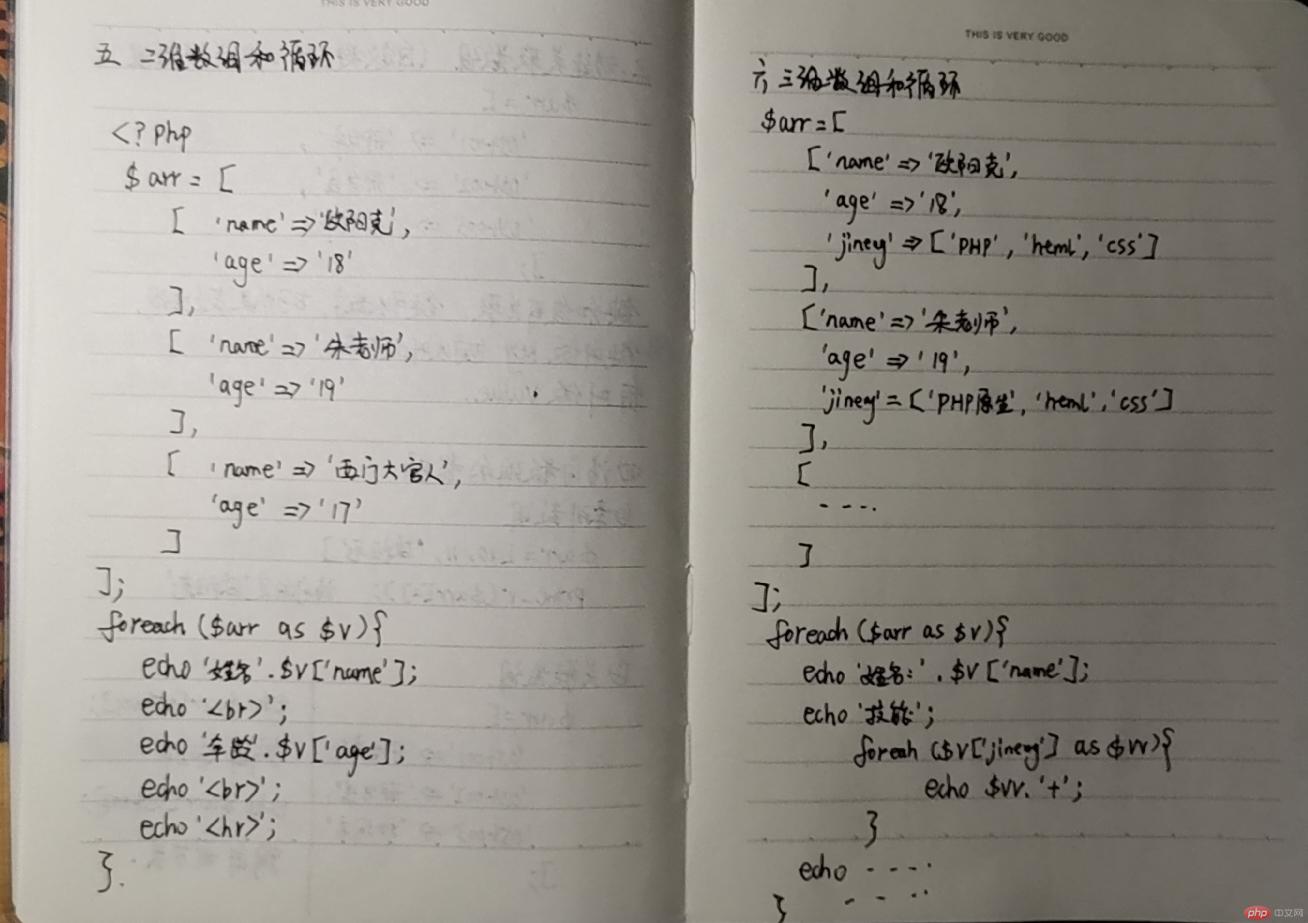 THIS IS VERY GOOD
五 二维数组和循环
<?php
$arr = [
[ 'name' => '欧阳克',
'age' => '18'
],
[ 'name' => '朱老师',
'age' => '19'
],
[ 'name' => '西门大官人',
'age' => '17'
]
];
foreach ($arr as $v){
echo '姓名'.$v['name'];
echo '<br>';
echo '年龄'.$v['age'];
echo '<br>';
echo '<hr>';
}.
THIS IS VERY GOOD
六 三维数组和循环
$arr = [
['name' => '欧阳克',
'age' => '18',
'jiney' => ['PHP', 'heml', 'css']
],
['name' => '朱老师',
'age' => '19',
'jiney' = ['PHP原生', 'heml', 'css']
],
[
- - - .
]
];
foreach ($arr as $v){
echo '姓名:' . $v['name'];
echo '技能';
foreah ($v['jiney'] as $vv){
echo $vv. '+';
}
echo - - - - .
- - - -
}
php 中文网